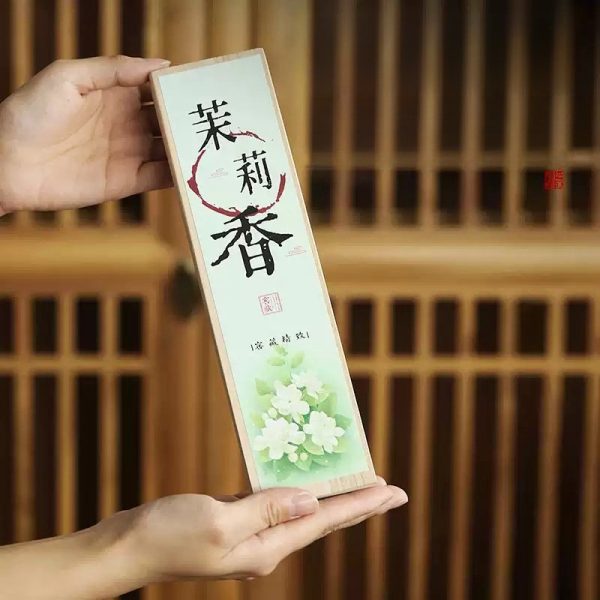 茉
莉
香
窖藏精致